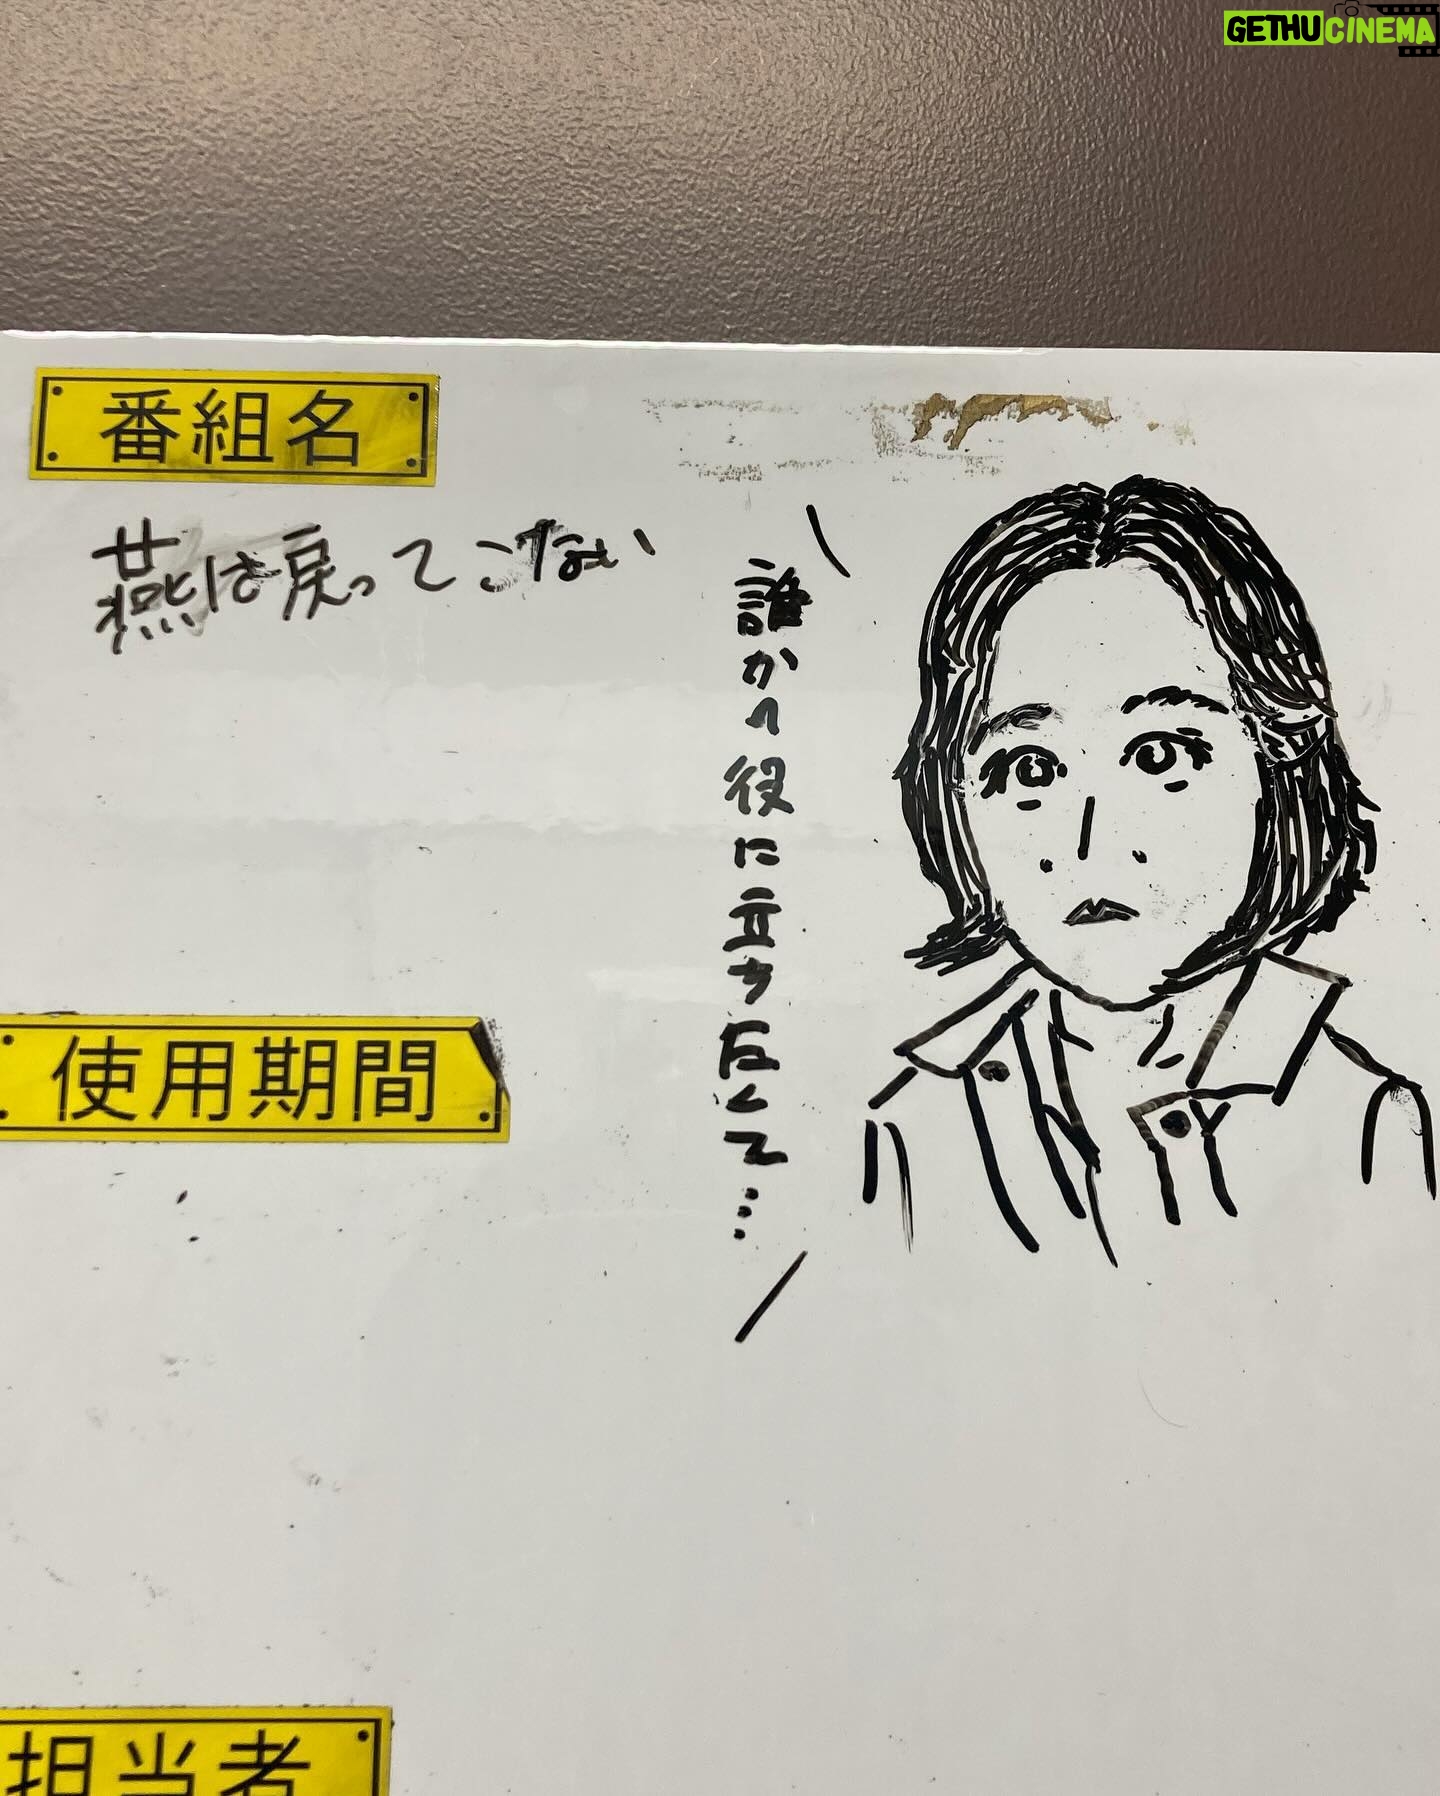 GETHUCINEMA
番組名
燕は戻ってこない
誰かの役に立ちたくて…
使用期間
担当者